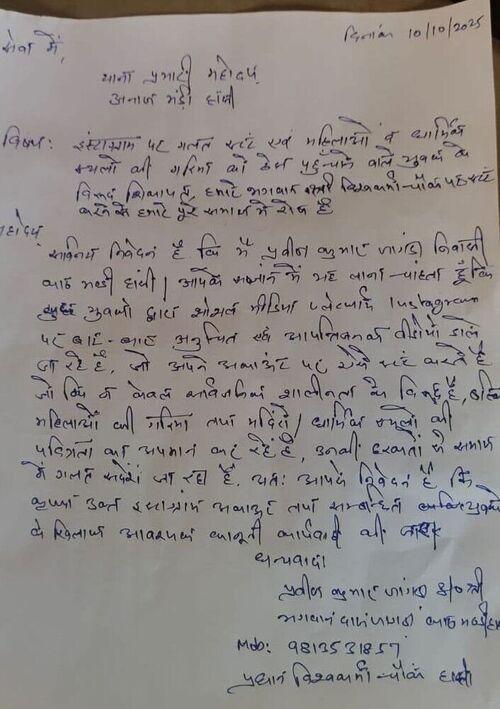 दिनांक 10/10/2025
सेवा में,
थाना प्रभारी महोदय
अनाज मंडी हांसी
विषय: इंस्टाग्राम पर गलत स्टंट एवं महिलाओं व धार्मिक
स्थलों की गरिमा को ठेस पहुँचाने वाले युवकों के
विरुद्ध शिकायत, हमारे भगवान श्री विश्वकर्मा चौक पर स्टंट
करने के हमारे पूरे समाज में रोष है
महोदय,
सविनय निवेदन है कि मैं प्रवीन कुमार जांगड़ा निवासी
काठ मण्डी हांसी। आपके संज्ञान में यह लाना चाहता हूँ कि
कुछ युवकों द्वारा सोशल मीडिया प्लेटफार्म Instagram
पर बार-बार अनुचित एवं आपत्तिजनक वीडियो डाले
जा रहे हैं, जो अपने अकाउंट पर ऐसे स्टंट करते हैं
जो कि न केवल सार्वजनिक शालीनता के विरुद्ध है, बल्कि
महिलाओं की गरिमा तथा मंदिरों/धार्मिक स्थलों की
पवित्रता का अपमान कर रहे हैं, उनकी हरकतों से समाज
में गलत संदेश जा रहा है. अतः आपसे निवेदन है कि
कृप्या उक्त इंस्टाग्राम अकाउंट तथा सम्बन्धित
के खिलाफ आवश्यक कानूनी कार्यवाही की जाए
धन्यवाद
प्रवीन कुमार जांगड़ा S/o श्री
भगवान दास जांगड़ा काठ मण्डी हांसी
Mob: 9813531857
प्रधान विश्वकर्मा चौक हांसी